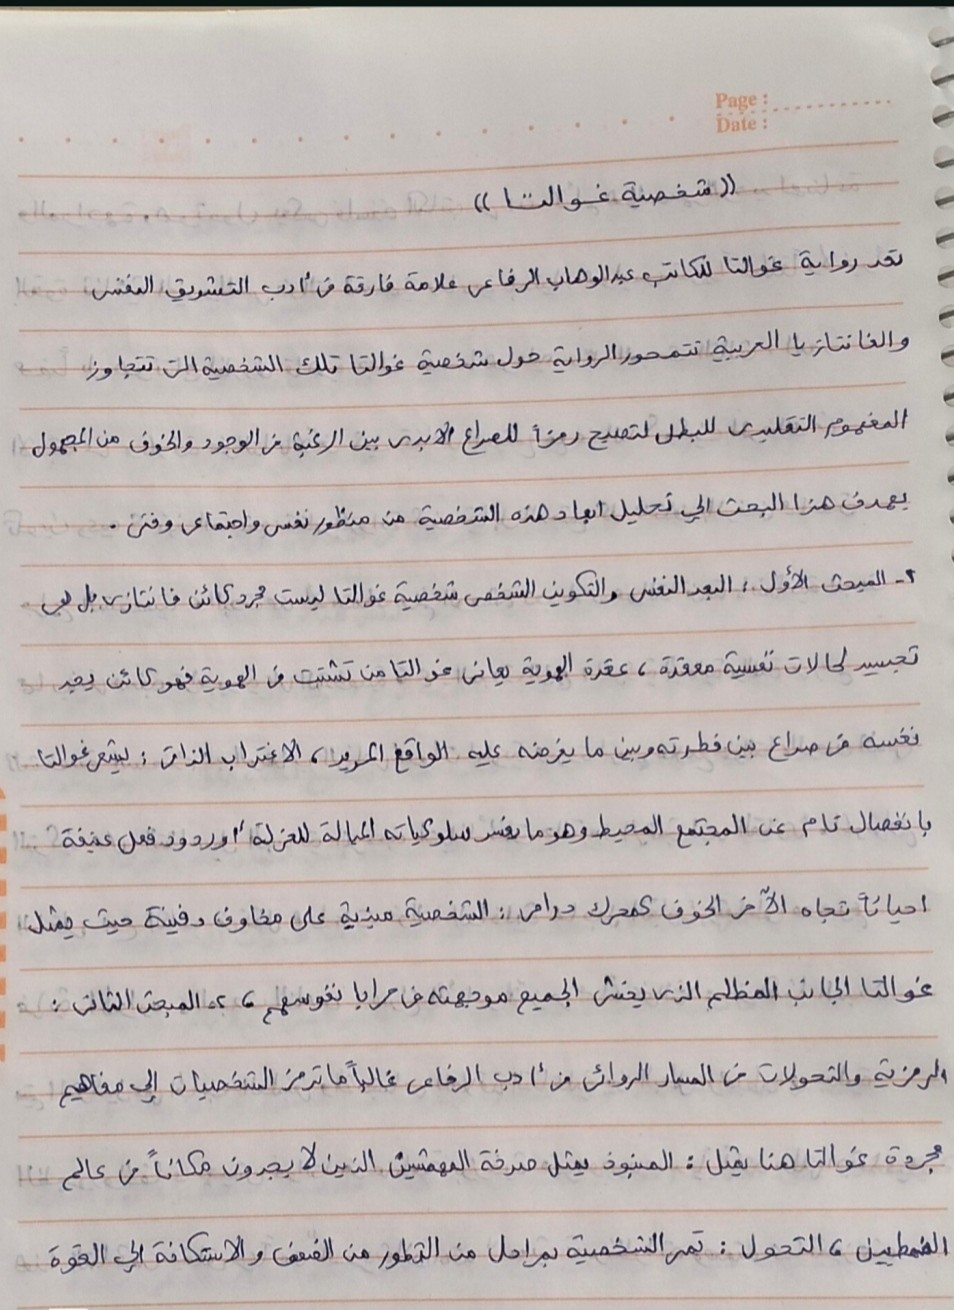 Page :
Date :
(( شخصية غوالتا ))
تعد رواية غوالتا للكاتب عبدالوهاب الرفاعي علامة فارقة في أدب التشويق النفسي
والفانتازيا العربية تتمحور الرواية حول شخصية غوالتا تلك الشخصية التي تتجاوز
المفهوم التقليدي للبطل لتصبح رمزاً للصراع الابدي بين الرغبة في الوجود والخوف من المجهول
يهدف هذا البحث الي تحليل ابعاد هذه الشخصية من منظور نفسي واجتماعي وفني .
٢- المبحث الأول : البعد النفسي والتكوين الشخصي شخصية غوالتا ليست مجرد كائن فانتازي بل هي
تجسيد لحالات نفسية معقدة ، عقدة الهوية يعاني غوالتا من تشتت في الهوية فهو كائن يجد
نفسه في صراع بين فطرته وبين ما يفرضه عليه الواقع المرير ، الاغتراب الذاتي : يشعر غوالتا
بانفصال تام عن المجتمع المحيط وهو ما يفسر سلوكياته الميالة للعزلة أو ردود فعل عنيفة
احياناً تجاه الآخر الخوف كمحرك درامي : الشخصية مبنية على مخاوف دفينة حيث يمثل
غوالتا الجانب المظلم الذي يخشى الجميع موجهته في مرايا نفوسهم ، ٢- المبحث الثاني :
الرمزية والتحولات في المسار الروائي في أدب الرفاعي غالباً ما ترمز الشخصيات الي مفاهيم
مجردة غوالتا هنا يمثل : المنبوذ يمثل صرخة المهمشين الذين لا يجدون مكاناً في عالم
النمطيين ، التحول : تمر الشخصية بمراحل من التطور من الضعف والاستكانة الي القوة